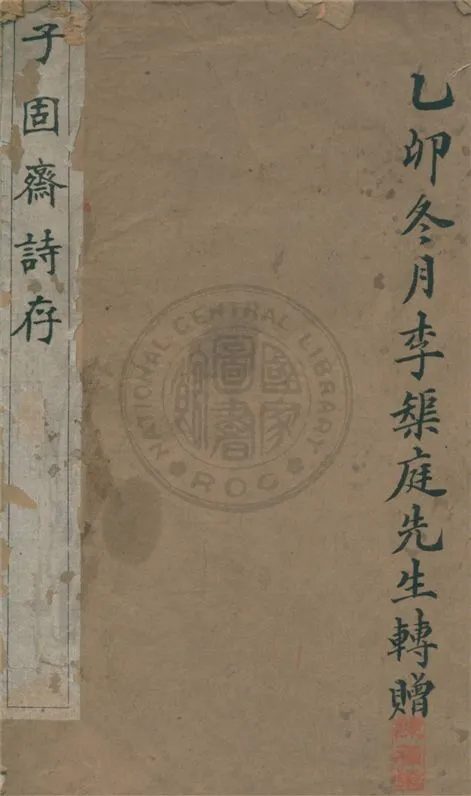 乙卯冬月李榘庭先生轉贈
子固齋詩存
NATIONAL CENTRAL LIBRARY
國家圖書館
ROC